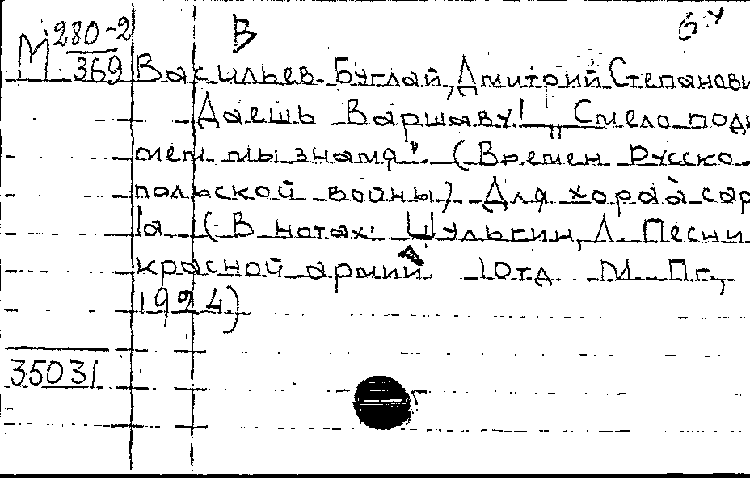 В
М 280-2
369
Васильев-Буглай, Дмитрий Степанови
Даешь Варшаву! „Смело подн
мем мы знамя". (Времен русско-
польской войны). Для хора а car
la (В нотах: Шульгин, Л. Песни
красной армии. 1отд. М. Пг,
1924)
35031